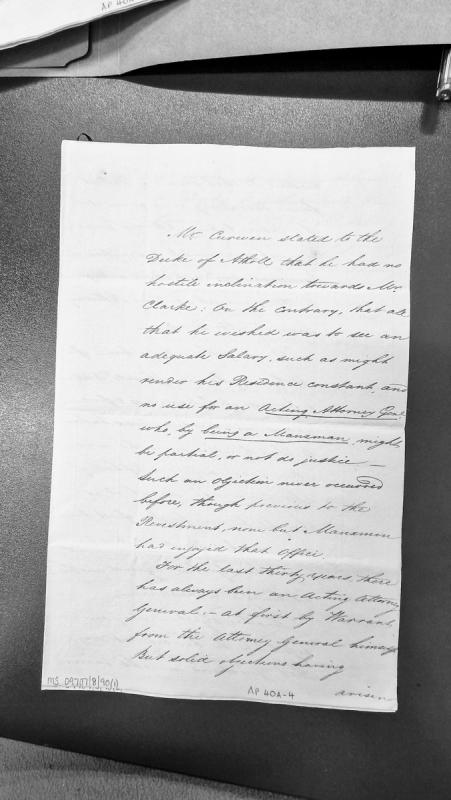 AP 40A
Mr Curwen stated to the
Duke of Atholl that he had no
hostile inclination towards Mr.
Clarke: On the contrary, that all
that he wished was to see an
adequate Salary, such as might
render his Residence constant, and
no use for an Acting Attorney Genl
who, by being a Manxman, might
be partial, or not do justice —
Such an objection never occurred
before, though previous to the
Revestment, none but Manxmen
had enjoyed that Office.
For the last thirty years, there
has always been an Acting Attorney
General, — at first by Warrant
from the Attorney General himself
But solid objections having
arisen
MS 09707/8/90(1)
AP 40A-4